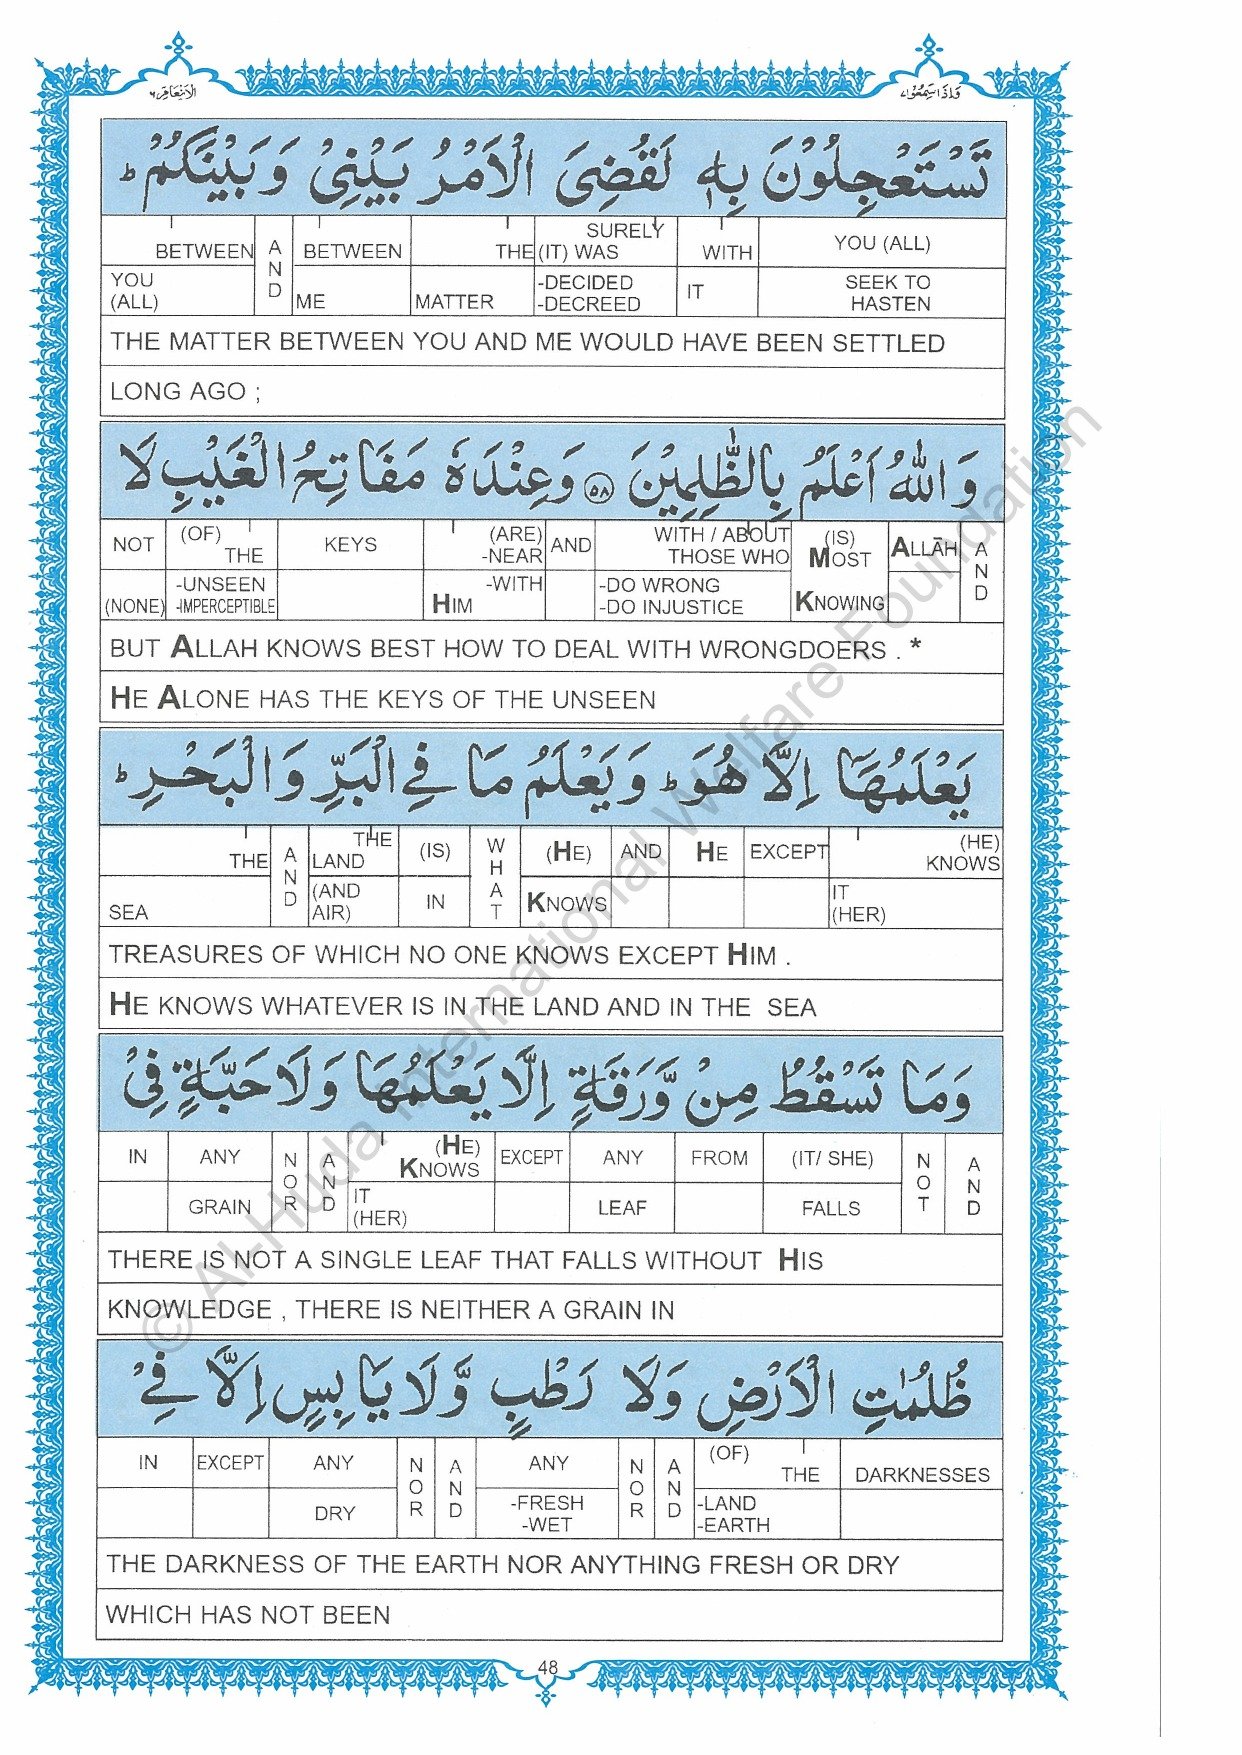 الانعام ٦
واذاسمعوا ٧
تَسْتَعْجِلُوْنَ بِهٖ لَقُضِىَ الْاَمْرُ بَيْنِىْ وَبَيْنَكُمْ ؕ
BETWEEN AND BETWEEN THE SURELY (IT) WAS WITH YOU (ALL)
YOU (ALL) ME MATTER -DECIDED -DECREED IT SEEK TO HASTEN
THE MATTER BETWEEN YOU AND ME WOULD HAVE BEEN SETTLED
LONG AGO ;
وَاللّٰهُ اَعْلَمُ بِالظّٰلِمِيْنَ ۝٥٨ وَعِنْدَهٗ مَفَاتِحُ الْغَيْبِ لَا
NOT (OF) THE KEYS (ARE) -NEAR AND WITH / ABOUT THOSE WHO (IS) MOST ALLĀH AND
(NONE) -UNSEEN -IMPERCEPTIBLE -WITH HIM -DO WRONG -DO INJUSTICE KNOWING
BUT ALLAH KNOWS BEST HOW TO DEAL WITH WRONGDOERS . *
HE ALONE HAS THE KEYS OF THE UNSEEN
يَعْلَمُهَاۤ اِلَّا هُوَ ؕ وَيَعْلَمُ مَا فِى الْبَرِّ وَالْبَحْرِ ؕ
THE AND THE LAND (IS) WHAT (HE) AND HE EXCEPT (HE) KNOWS
SEA (AND AIR) IN KNOWS IT (HER)
TREASURES OF WHICH NO ONE KNOWS EXCEPT HIM .
HE KNOWS WHATEVER IS IN THE LAND AND IN THE SEA
وَمَا تَسْقُطُ مِنْ وَّرَقَةٍ اِلَّا يَعْلَمُهَا وَلَا حَبَّةٍ فِىْ
IN ANY NOR AND (HE) KNOWS EXCEPT ANY FROM (IT/ SHE) NOT AND
GRAIN IT (HER) LEAF FALLS
THERE IS NOT A SINGLE LEAF THAT FALLS WITHOUT HIS
KNOWLEDGE , THERE IS NEITHER A GRAIN IN
ظُلُمٰتِ الْاَرْضِ وَلَا رَطْبٍ وَّلَا يَابِسٍ اِلَّا فِىْ
IN EXCEPT ANY NOR AND ANY NOR AND (OF) THE DARKNESSES
DRY -FRESH -WET -LAND -EARTH
THE DARKNESS OF THE EARTH NOR ANYTHING FRESH OR DRY
WHICH HAS NOT BEEN
48
© Al-Huda International Welfare Foundation